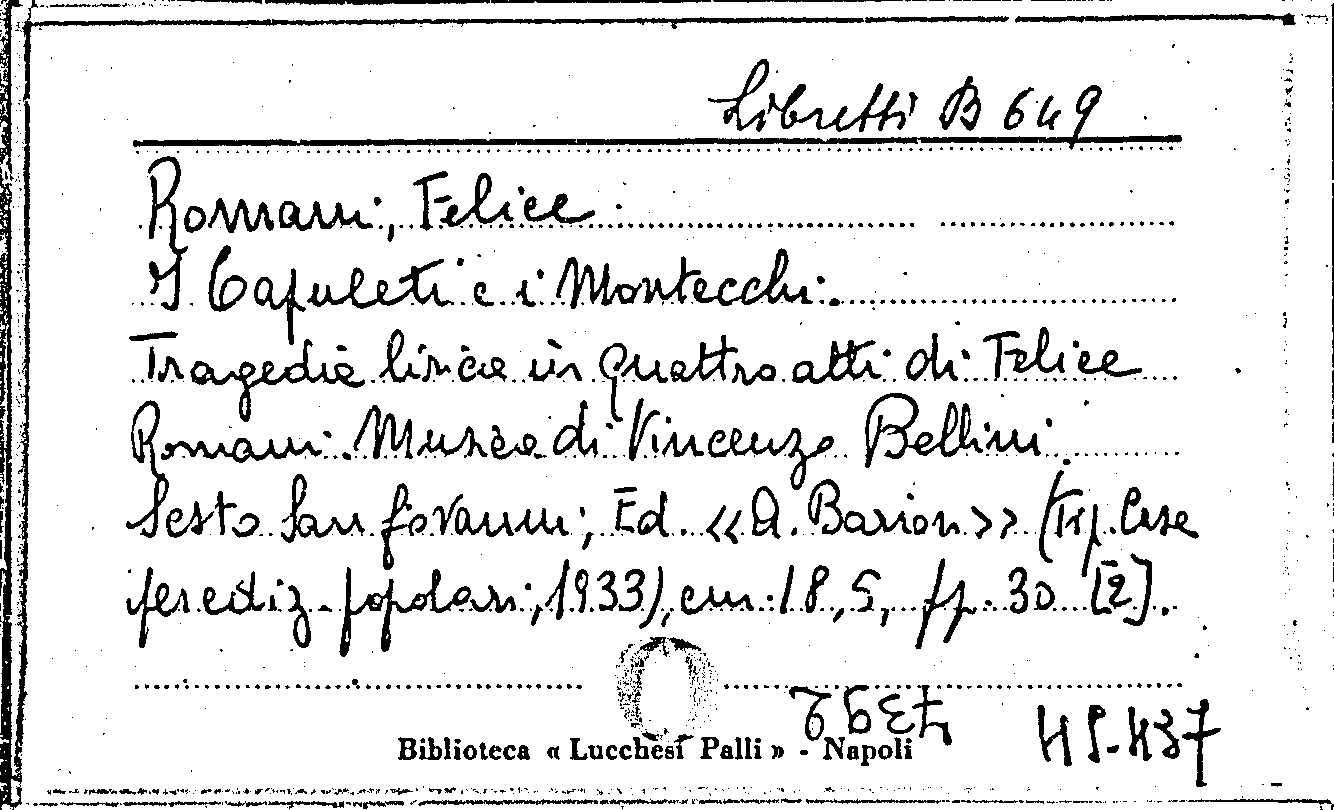 Libretti B 649
Romani, Felice.
I Capuleti e i Montecchi.
Tragedia lirica in quattro atti di Felice
Romani. Musica di Vincenzo Bellini.
Sesto San Giovanni, Ed. «A. Barion» (Tip. Casa
per ediz. popolari, 1933), cm. 18,5, pp. 30 [2].
Biblioteca « Lucchesi Palli » - Napoli